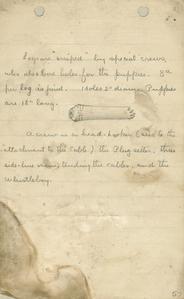 Logs are "sniped" by special crews,
who also bore holes for the puppies. 8¢
per log is paid. Holes 2" diam. Puppies
are 18" long.
A crew is a head-hooker (sees to the
attachment to the cable) the Sling seller, three
side-line men, tending the cables, and the
whistleboy.
5